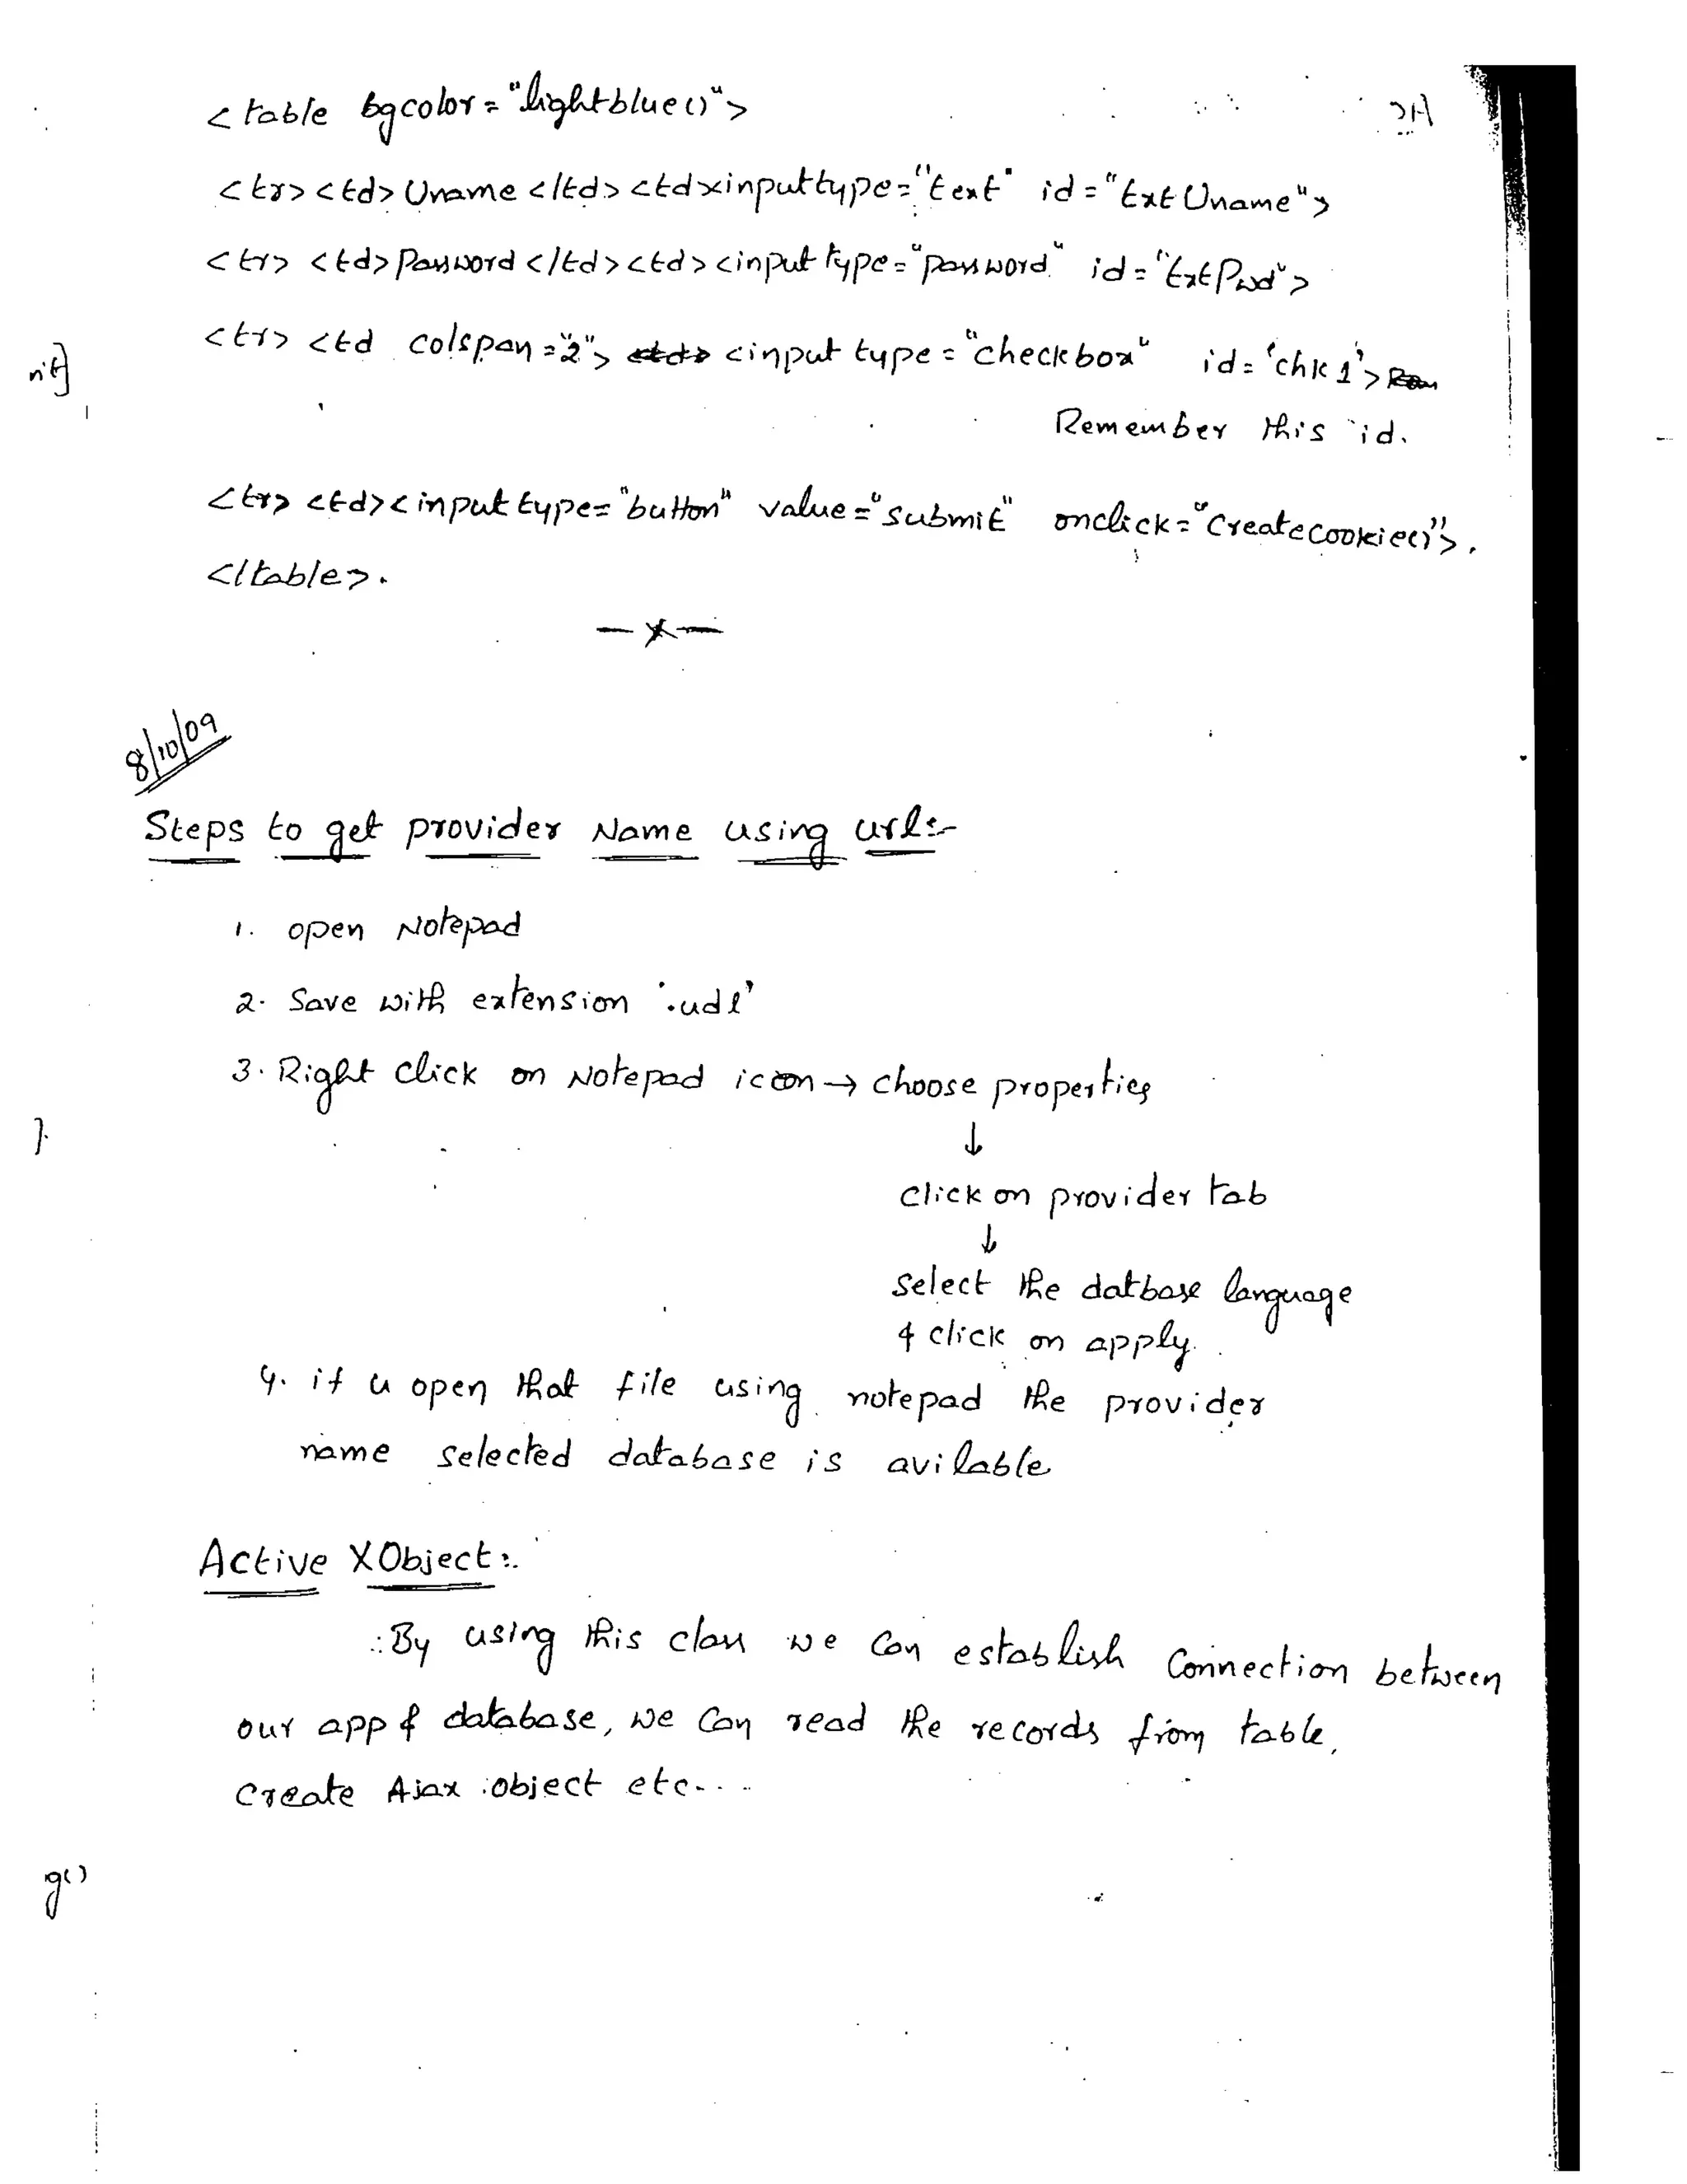 <table bgcolor="lightblue()">
<tr><td> Uname </td><td><input type="text" id="txtUname">
<tr> <td> Password </td><td> <input type="password" id="txtPwd">
<tr> <td colspan="2"> <input type="checkbox" id='chk1'>
Remember this id.
<tr> <td><input type="button" value="submit" onclick="CreateCookie()">.
</table>.
—x—
8/10/09
Steps to get provider Name using url:-
1. open Notepad
2. Save with extension '.udl'
3. Right click on Notepad icon → choose properties
↓
click on provider tab
↓
select the datbase language
& click on apply.
4. if u open that file using notepad the provider
name selected database is avilable
Active XObject:.
By using this class we can establish Connection between
our app & database, we can read the records from table,
Create Ajax object etc....
g()